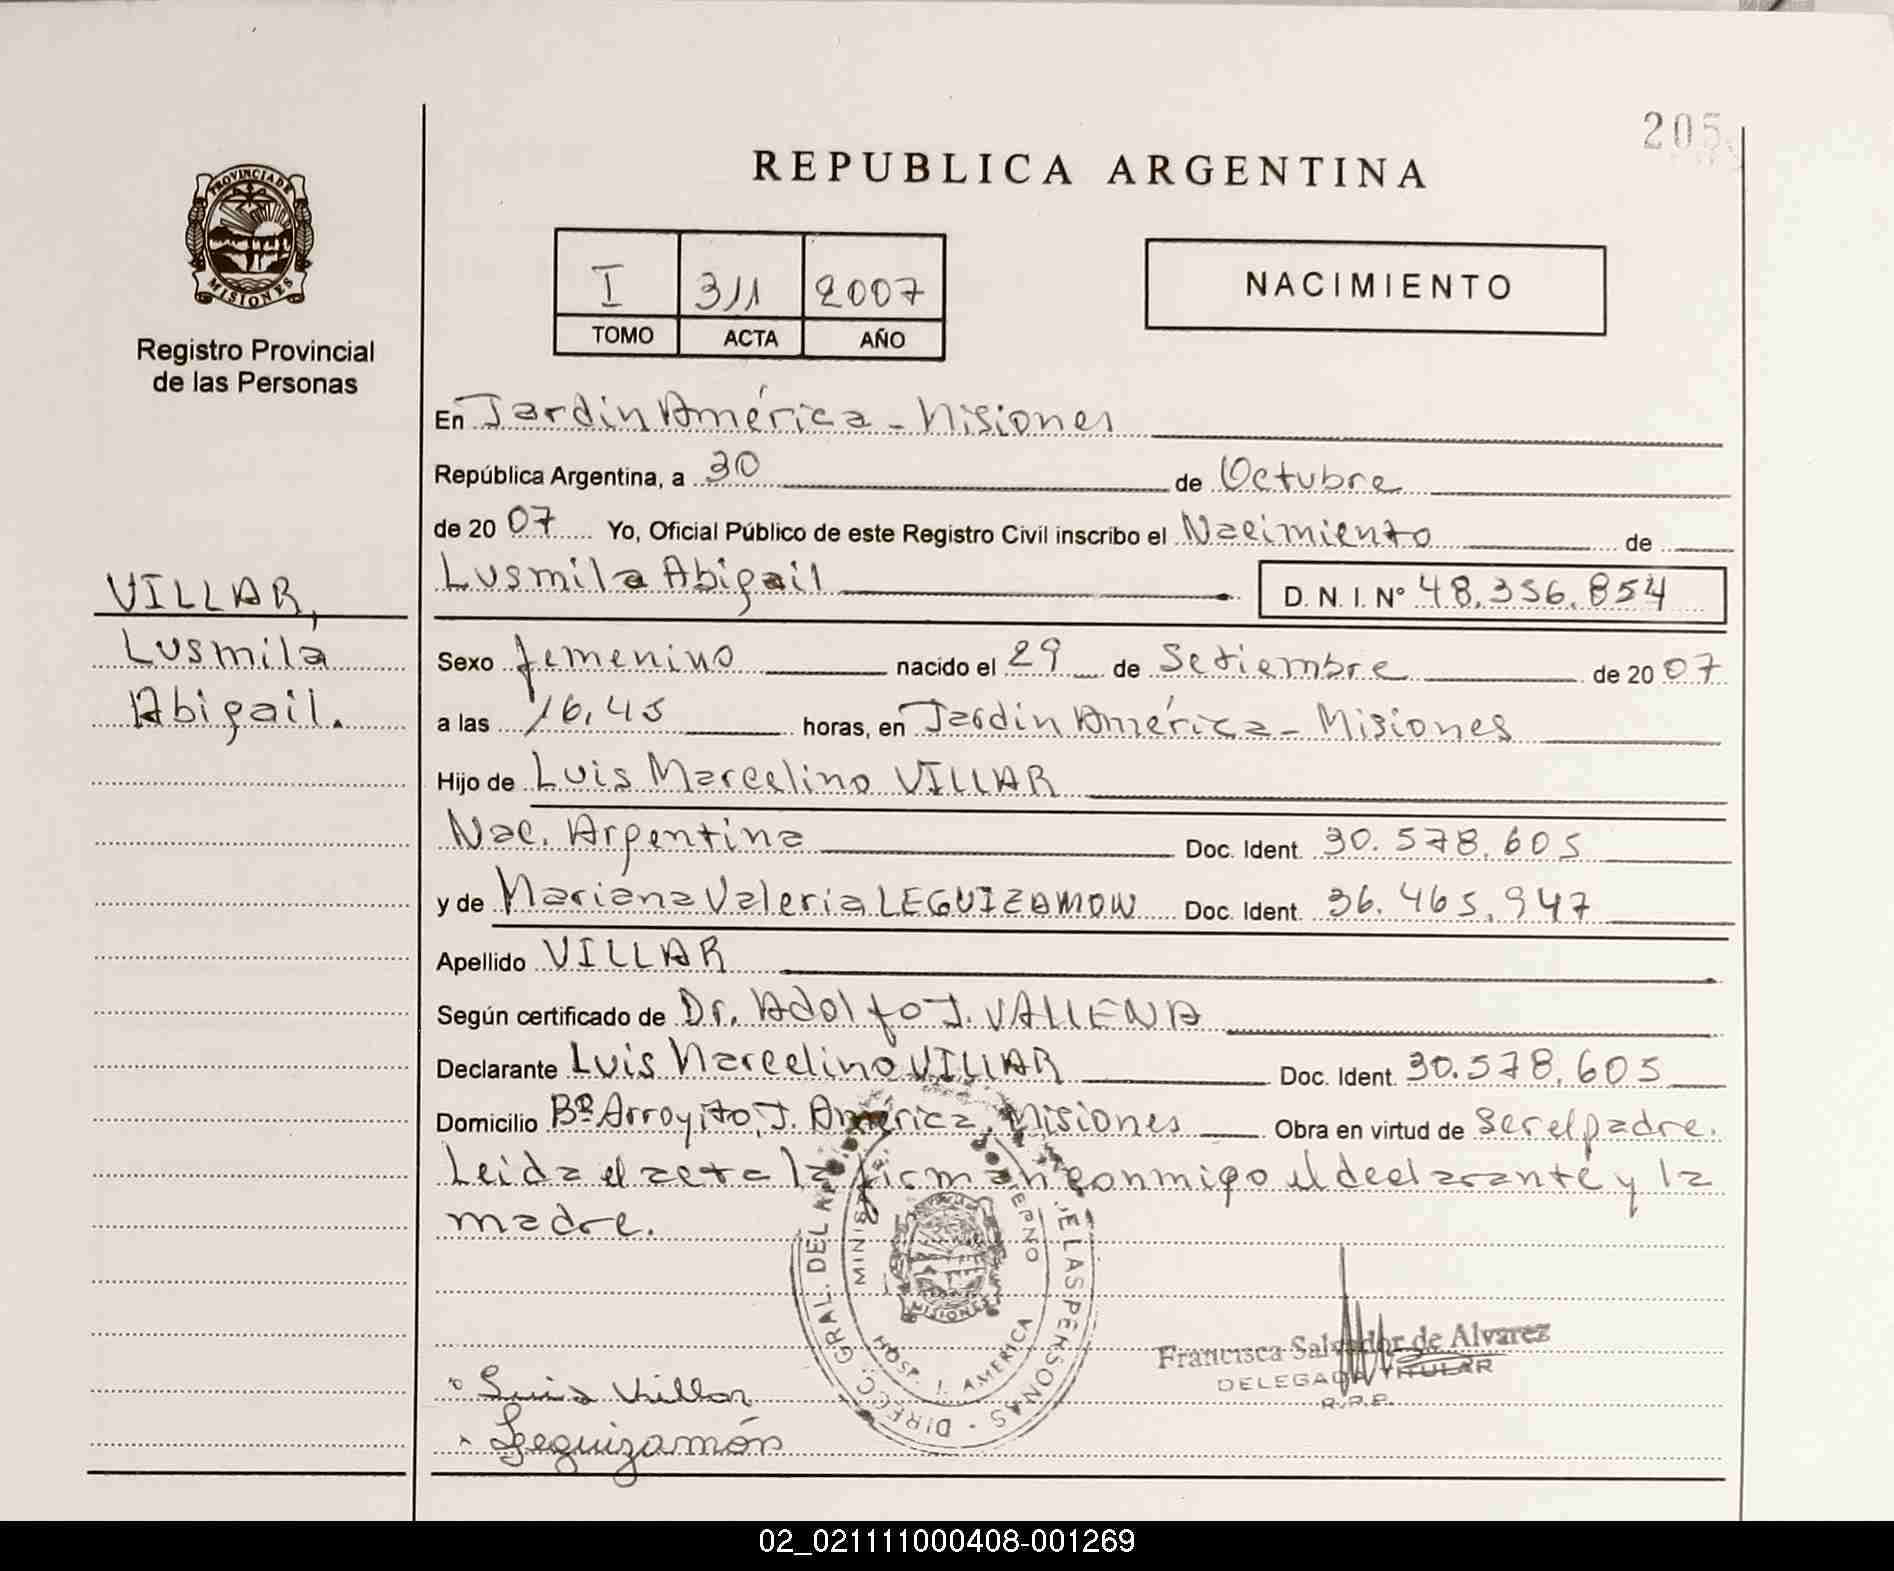 205
PROVINCIA DE
MISIONES
Registro Provincial
de las Personas
VILLAR,
Lusmila
Abigail.
REPUBLICA ARGENTINA
I 311 2007
TOMO ACTA AÑO
NACIMIENTO
En Jardín América - Misiones
República Argentina, a 30 de Octubre
de 2007 Yo, Oficial Público de este Registro Civil inscribo el Nacimiento de
Lusmila Abigail D. N. I. N° 48.356.854
Sexo femenino nacido el 29 de Setiembre de 2007
a las 16,45 horas, en Jardín América - Misiones
Hijo de Luis Marcelino VILLAR
Nac. Argentina Doc. Ident. 30.578.605
y de Mariana Valeria LEGUIZAMON Doc. Ident. 36.465.947
Apellido VILLAR
Según certificado de Dr. Adolfo J. VALLENA
Declarante Luis Marcelino VILLAR Doc. Ident. 30.578.605
Domicilio Bº Arroyito, J. América, Misiones Obra en virtud de ser el padre.
Leida el acta la firman conmigo el declarante y la
madre.
DIRECC. GRAL. DEL ELAS PERSONAS
MINIS ERNO
MISIONES
HOSP. J. AMERICA
Francisca Salvador de Alvarez
DELEGADA TITULAR
R.P.P.
Luis Villar
Leguizamón
02_021111000408-001269